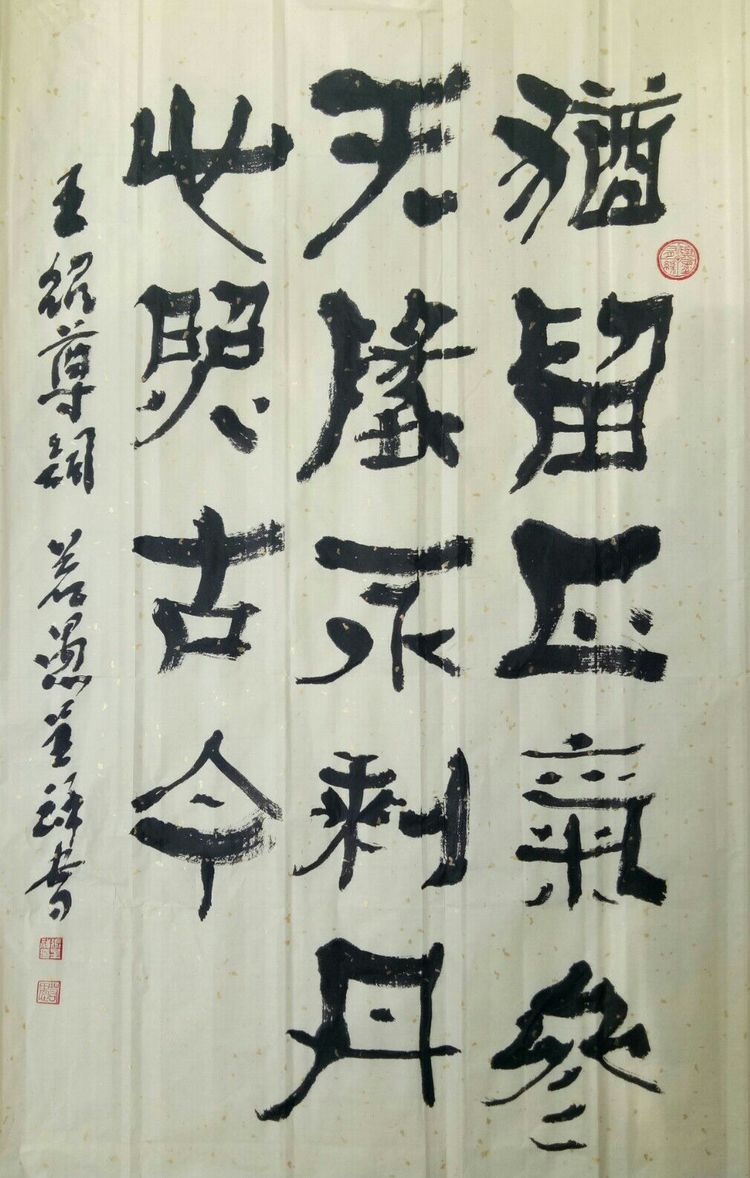 猶留正氣參
天隆永剩丹
心照古今
王紹尊詞 若愚笙祥書